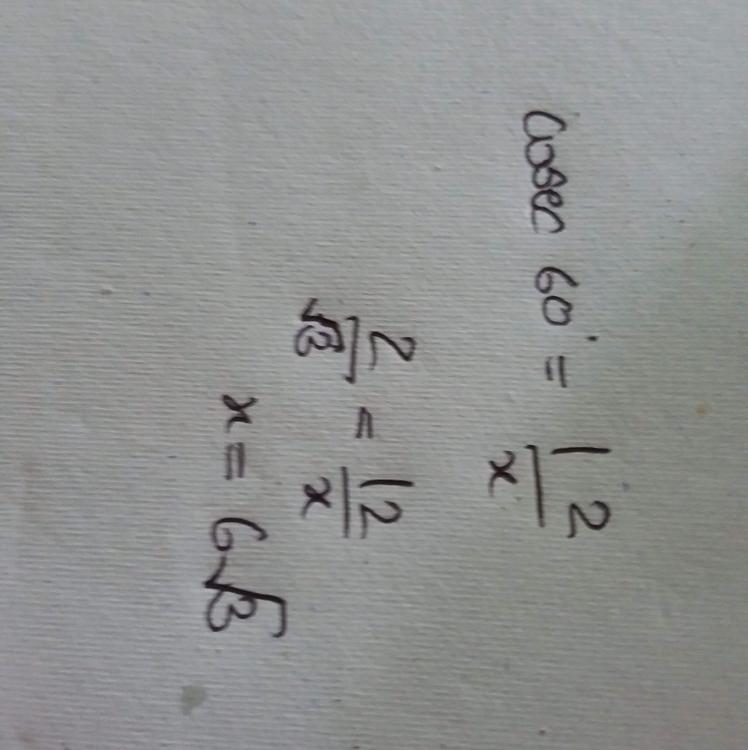 cosec 60° = 12/x
2/√3 = 12/x
x = 6√3